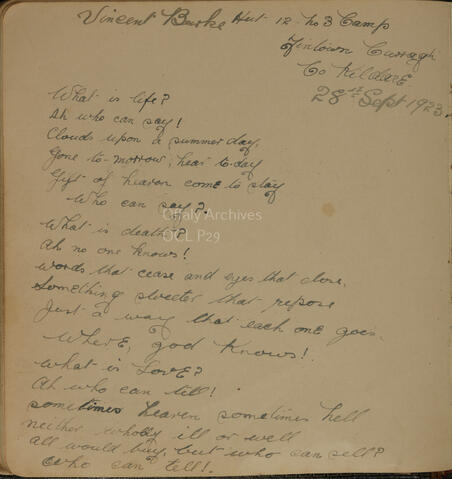 Vincent Burke Hut 12 No 3 Camp
Tintown Curragh
Co Kildare
28st Sept 1923
What is life?
Ah who can say!
Clouds upon a summer day,
Gone to-morrow, hear to-day
Gift of heaven come to stay
Who can say?.
What is death?
Ah no one knows!
words that cease and eyes that close,
Something sweeter that repose
Just a way that each one goes
Where, god knows!.
What is Love?
Ah who can tell!
sometimes heaven sometimes hell
neither wholly ill or well
all would buy, but who can sell?
who can tell!.
Offaly Archives
OCL P29